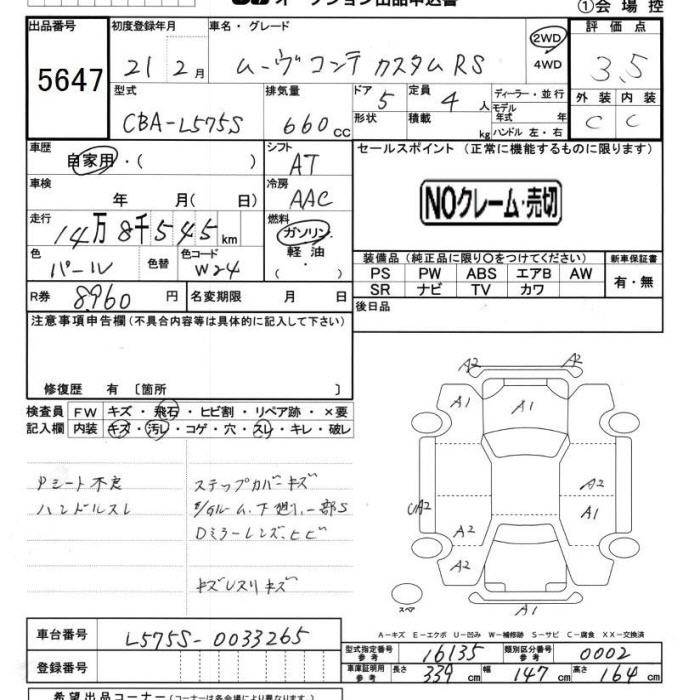 オークション出品申込書 ①会場控
出品番号 初度登録年月 車名・グレード 評価点
5647 21 2月 ムーヴコンテ カスタムRS 2WD 4WD 3.5
型式 排気量 ドア 5 定員 4人 ディーラー・並行 外装 内装
CBA-L575S 660cc 形状 積載 kg モデル年式 年 C C
ハンドル 左・右
車歴 自家用・( ) シフト AT セールスポイント (正常に機能するものに限ります)
車検 年 月( 日) 冷房 AAC NOクレーム・売切
走行 14万8千545km 燃料 ガソリン 軽油 ・ ( )
色 パール 色替 色コード W24 装備品(純正品に限り○をつけてください) 新車保証書
PS PW ABS エアB AW 有・無
SR ナビ TV カワ
R券 8,960円 名変期限 月 日 後日品
注意事項申告欄(不具合内容等は具体的に記入して下さい)
修復歴 有 〔箇所 〕
検査員 FW キズ・飛石・ヒビ割・リペア跡・×要
記入欄 内装 キズ・汚レ・コゲ・穴・スレ・キレ・破レ
Pシート不良 ステップカバーキズ
ハンドルスレ 下廻り一部S
Dミラーレンズ、ヒビ
キズ
A2 A2
A1 A1
A2
UA2 A1
A2
A2
A1
スペア
A-キズ E-エクボ U-凹み W-補修跡 S-サビ C-腐食 XX-交換済
車台番号 L575S-0033265
登録番号
型式指定番号参考 16135 類別区分番号参考 0002
車庫証明用参考 長さ 339cm 幅 147cm 高さ 164cm
希望出品コーナー(コーナーは各会場により異なります。)